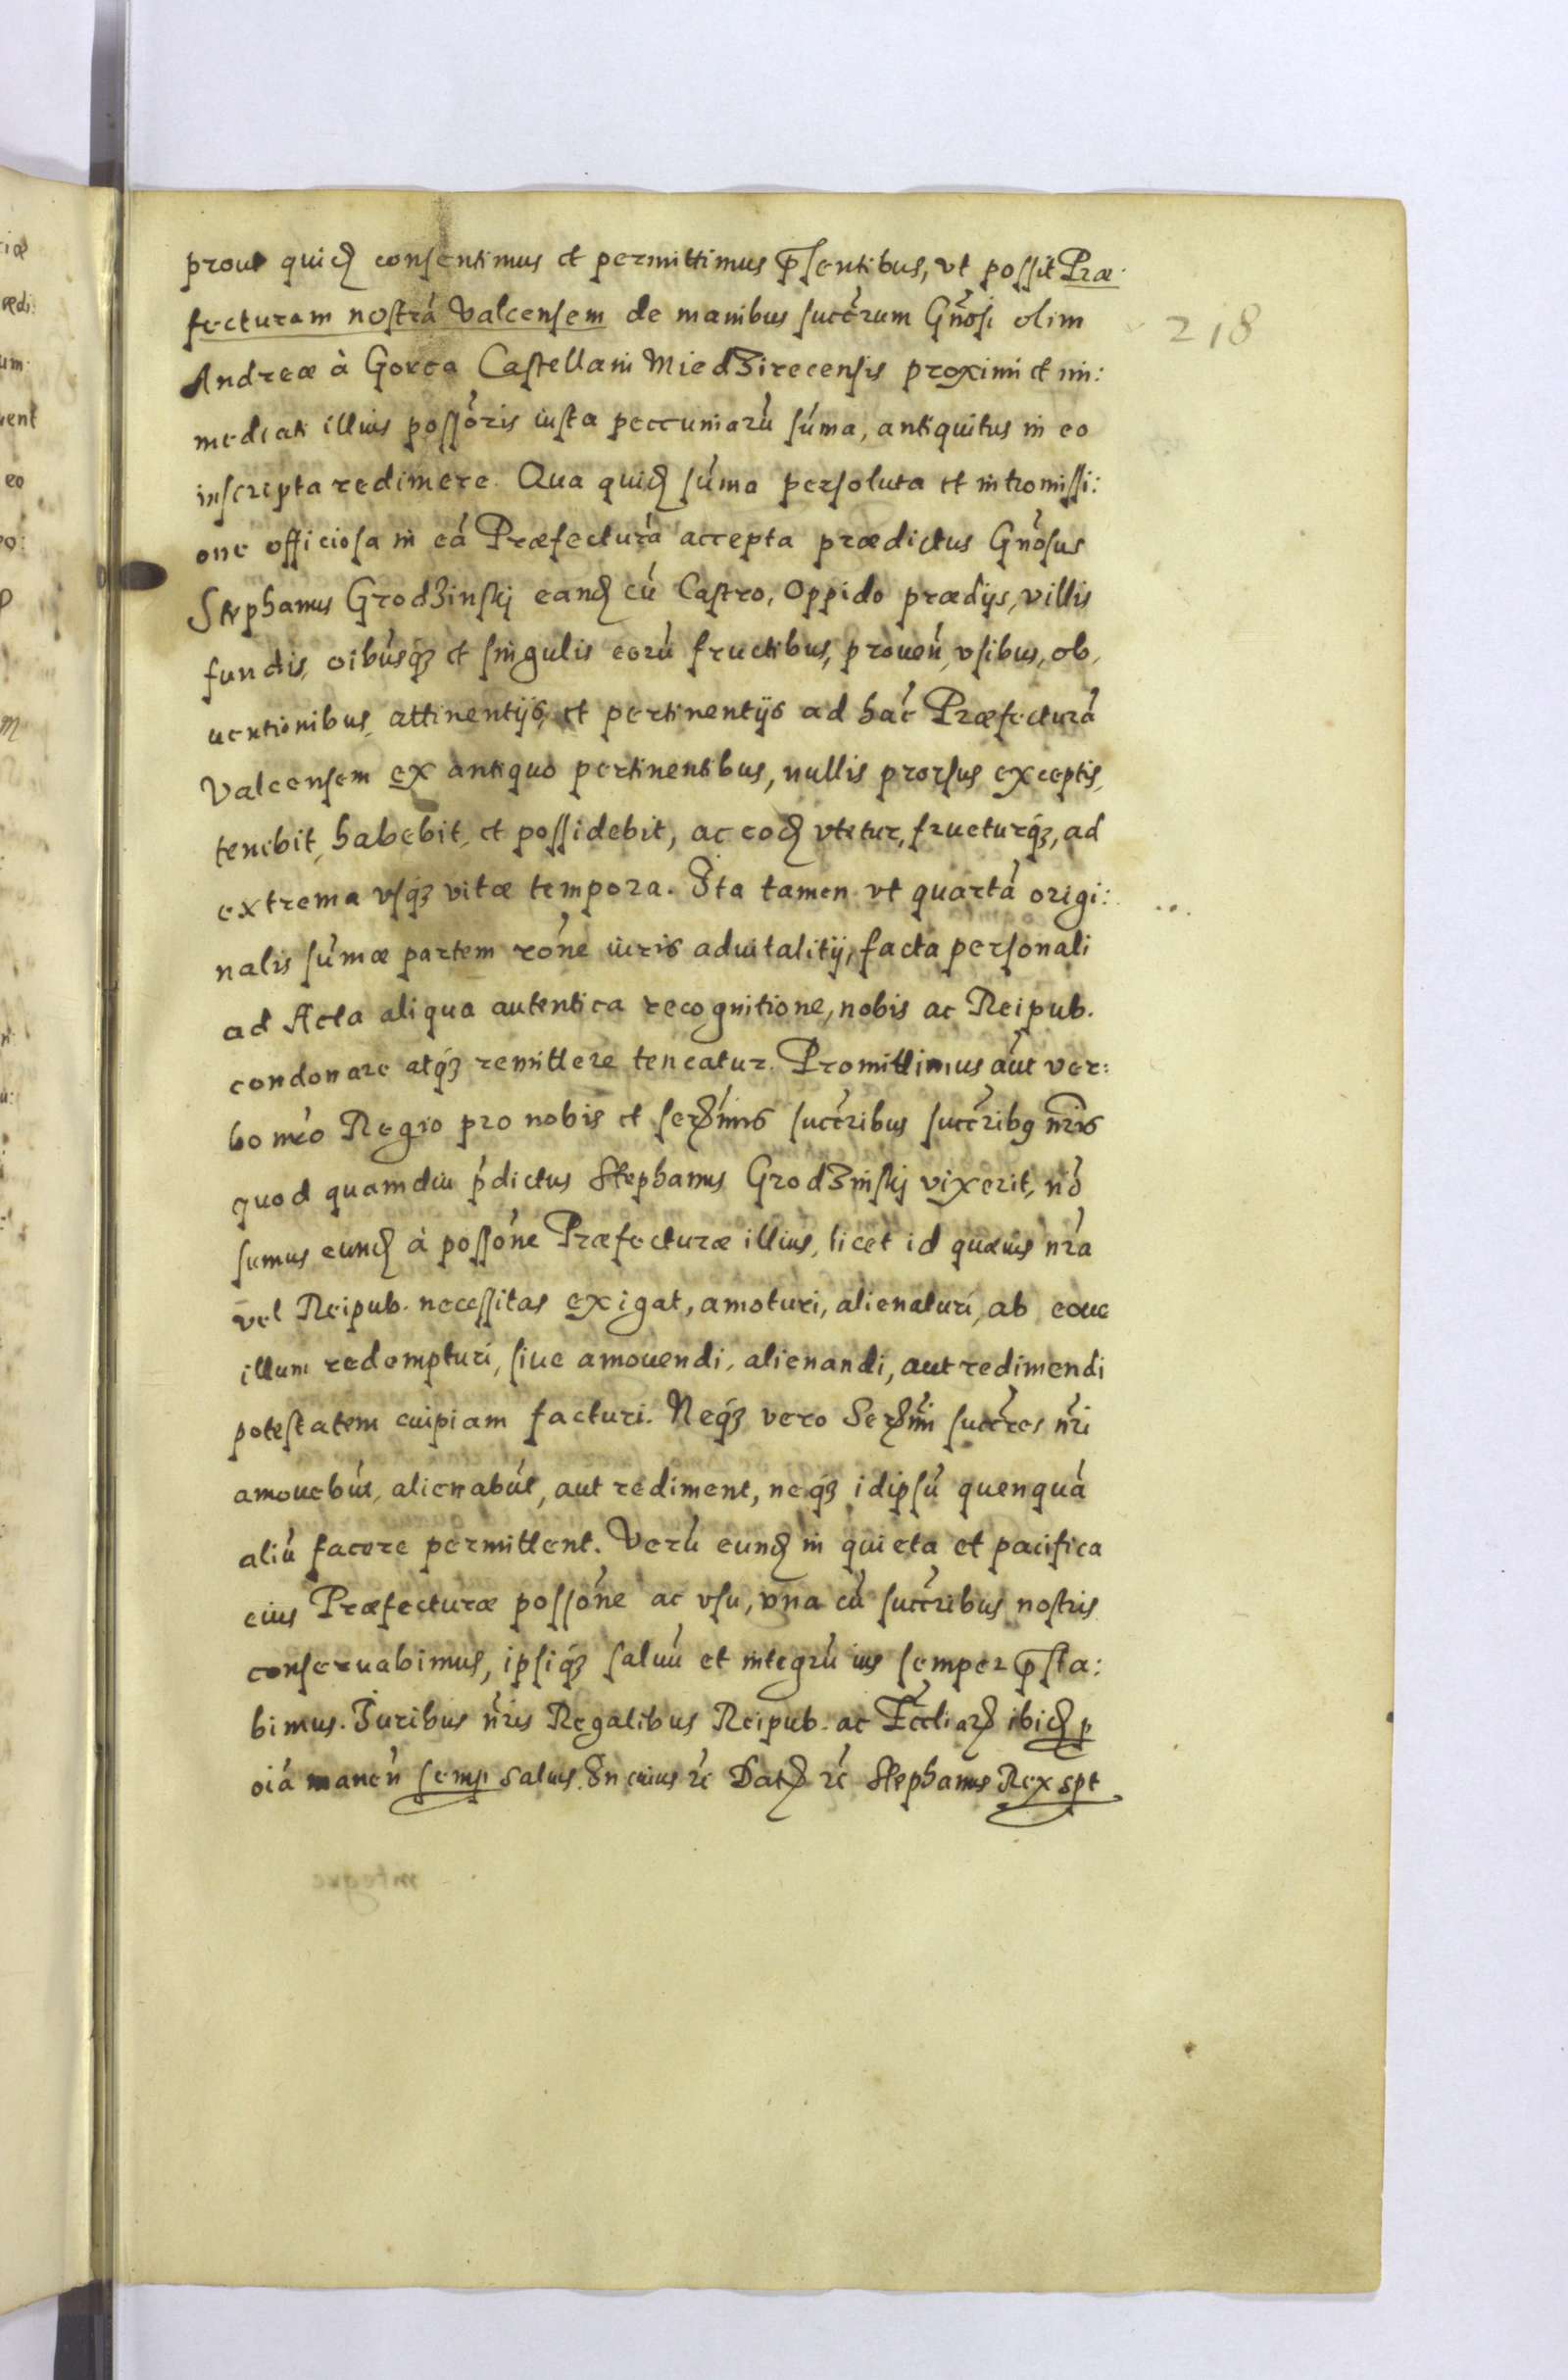 prout quidē consentimus et permittimus p̄sentibus, vt possit Præ:
fecturam nostrā Valcensem de manibus succr̃um Gñosi olim
218
Andreæ à Gorca Castellani Miedzirecensis proximi et im:
mediati illius possōris iusta peccuniarū sūma, antiquitus in eo
inscripta redimere. Qua quidē sūma persoluta et intromissi:
one officiosa in eā Præfecturā accepta prædictus Gñosus
Stephanus Grodzinskij eandē cū Castro, Oppido prædijs, villis
fundis, oībusq́₃ et singulis eorū fructibus, prouen̄, vsibus, ob,
uentionibus, attinentijs, et pertinentijs ad hāc Præfecturā
Valcensem ex antiquo pertinentibus, nullis prorsus exceptis,
tenebit, habebit, et possidebit, ac eodē vtetur, frueturq́₃, ad
extrema vsq́₃ vitæ tempora. Ita tamen vt quartā origi:
nalis sūmæ partem rōne iuris aduitalitij, facta personali
ad Acta aliqua autentica recognitione, nobis ac Reipub.
condonare atq́₃ remittere teneatur. Promittimus aūt ver:
bo nr̄o Regio pro nobis et serᵐⁱˢ succr̃ibus succr̃ibꝯ nr̃is
quod quamdiu p̄dictus Stephanus Grodzinskij vixerit, nō
sumus eundē à possōne Præfecturæ illius, licet id quæuis nr̄a
vel Reipub. necessitas exigat, amoturi, alienaturi, ab eoue
illum redempturi, siue amouendi, alienandi, aut redimendi
potestatem cuipiam facturi. Neq́₃ vero Serᵐⁱ succr̃es nr̃i
amouebūt, alienabūt, aut rediment, neq́₃ idipsū quenquā
aliū facere permittent. Verū eundē in quieta et pacifica
eius Præfecturæ possōne ac vsu, vna cū succr̃ibus nostris
conseruabimus, ipsiq́₃ saluū et integrū ius semper p̄sta:
bimus. Iuribus nr̃is Regalibus Reipub. ac Eccliarꝝ ibidē p
oīa manen̄ semp saluis. In cuius rē Datꝝ rē Stephanus Rex spt